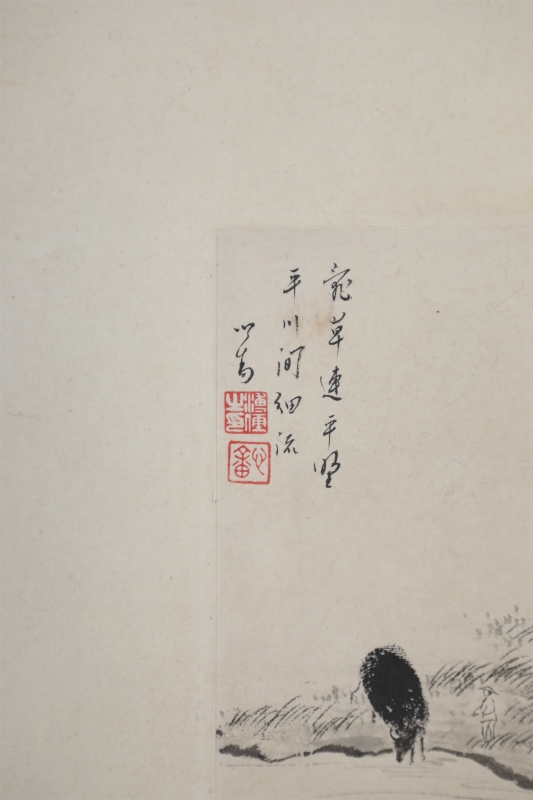 草連平野
平川間細流
心畬
溥儒之印
心畬